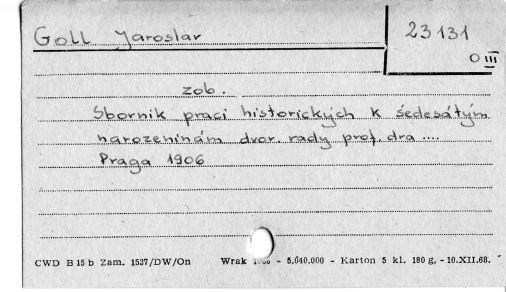 Goll Jaroslar
23131
O III
zob.
Sbornik praci historických k šedesátým
narozeninám dvor. rady prof. dra ....
Praga 1906
CWD B 15 b Zam. 1537/DW/On Wrak - 5.040.000 - Karton 5 kl. 180 g. - 10.XII.68.